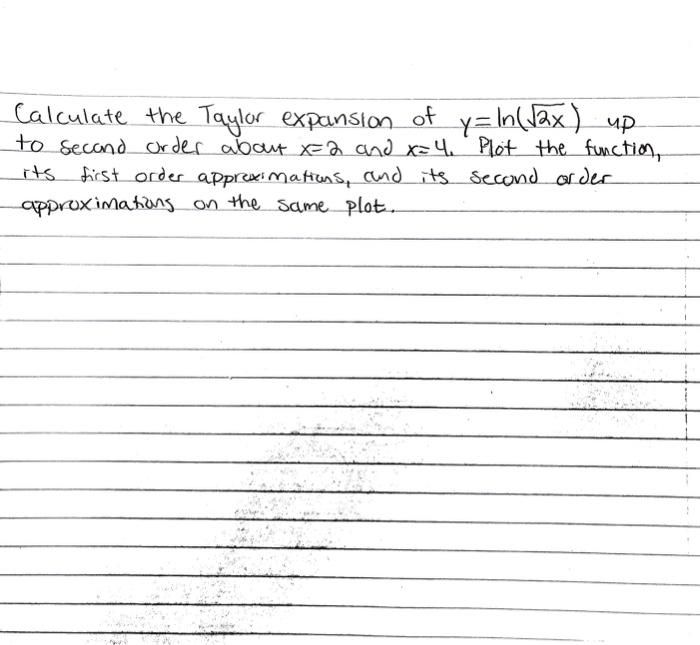 Calculate the Taylor expansion of y=ln(√2x) up
to second order about x=2 and x=4. Plot the function,
its first order approximations, and its second order
approximations on the same plot.